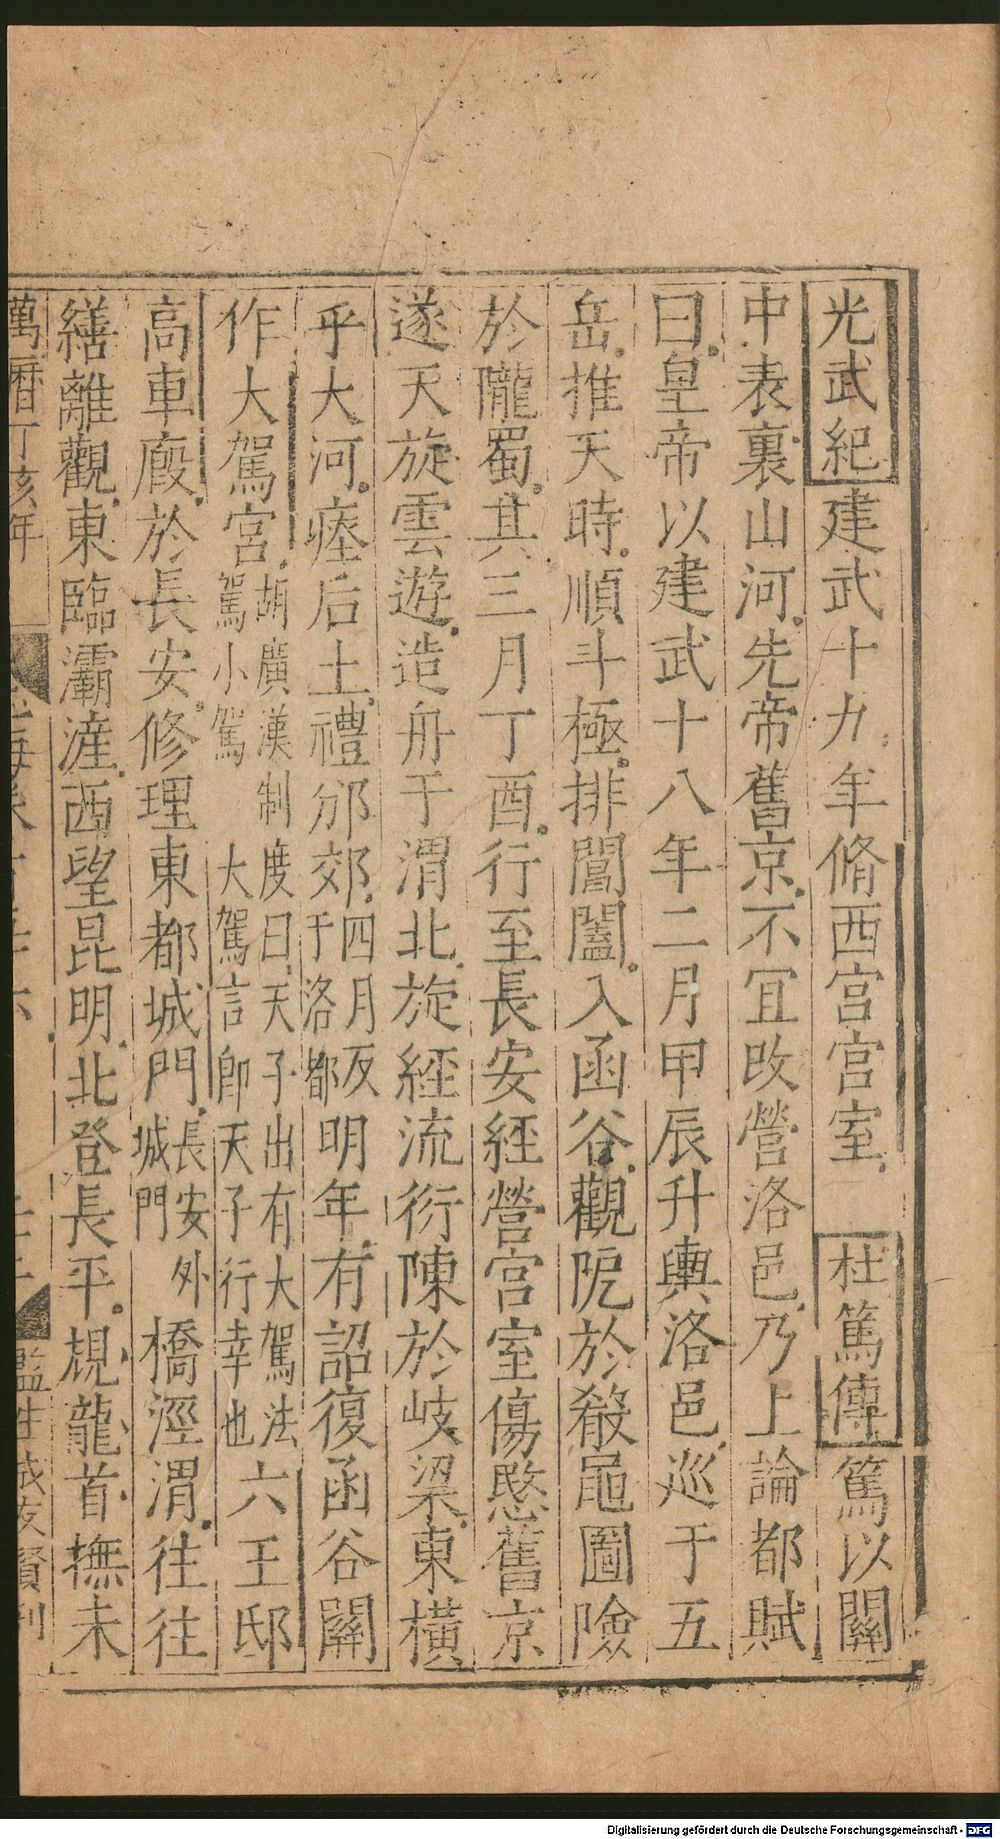 光武紀建武十九年脩西宮宮室　杜篤傳篤以關
中表裏山河先帝舊京不宜改營洛邑乃上論都賦
曰皇帝以建武十八年二月甲辰升輿洛邑巡于五
岳推天時順斗極排閶闔入函谷觀阸於殽黽圖險
於隴蜀其三月丁酉行至長安經營宮室傷愍舊京
遂天旋雲遊造舟于渭北旋經流衍陳於岐梁東橫
乎大河瘞后土禮邠郊四月反于洛都明年有詔復函谷關
作大駕宮胡廣漢制度曰天子出有大駕法駕小駕大駕言卽天子行幸也六王邸
高車廄於長安修理東都城門長安外城門橋涇渭往往
繕離觀東臨灞滻西望昆明北登長平規龍首撫未
萬曆丁亥年
監生
刊
Digitalisierung gefördert durch die Deutsche Forschungsgemeinschaft - DFG